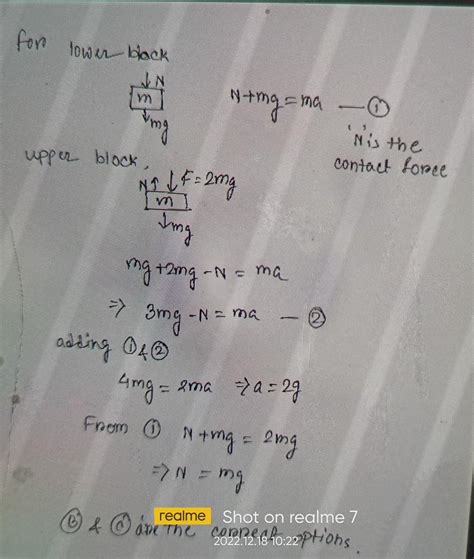 for lower block
↓N
m
↓mg
N+mg = ma — ①
'N' is the
contact force
upper block,
N↑ ↓F=2mg
m
↓mg
mg+2mg-N = ma
⇒ 3mg-N = ma — ②
adding ① & ②
4mg = 2ma ⇒ a = 2g
From ① N+mg = 2mg
⇒ N = mg
realme Shot on realme 7
2022.12.18 10:22
Ⓑ & are the options.